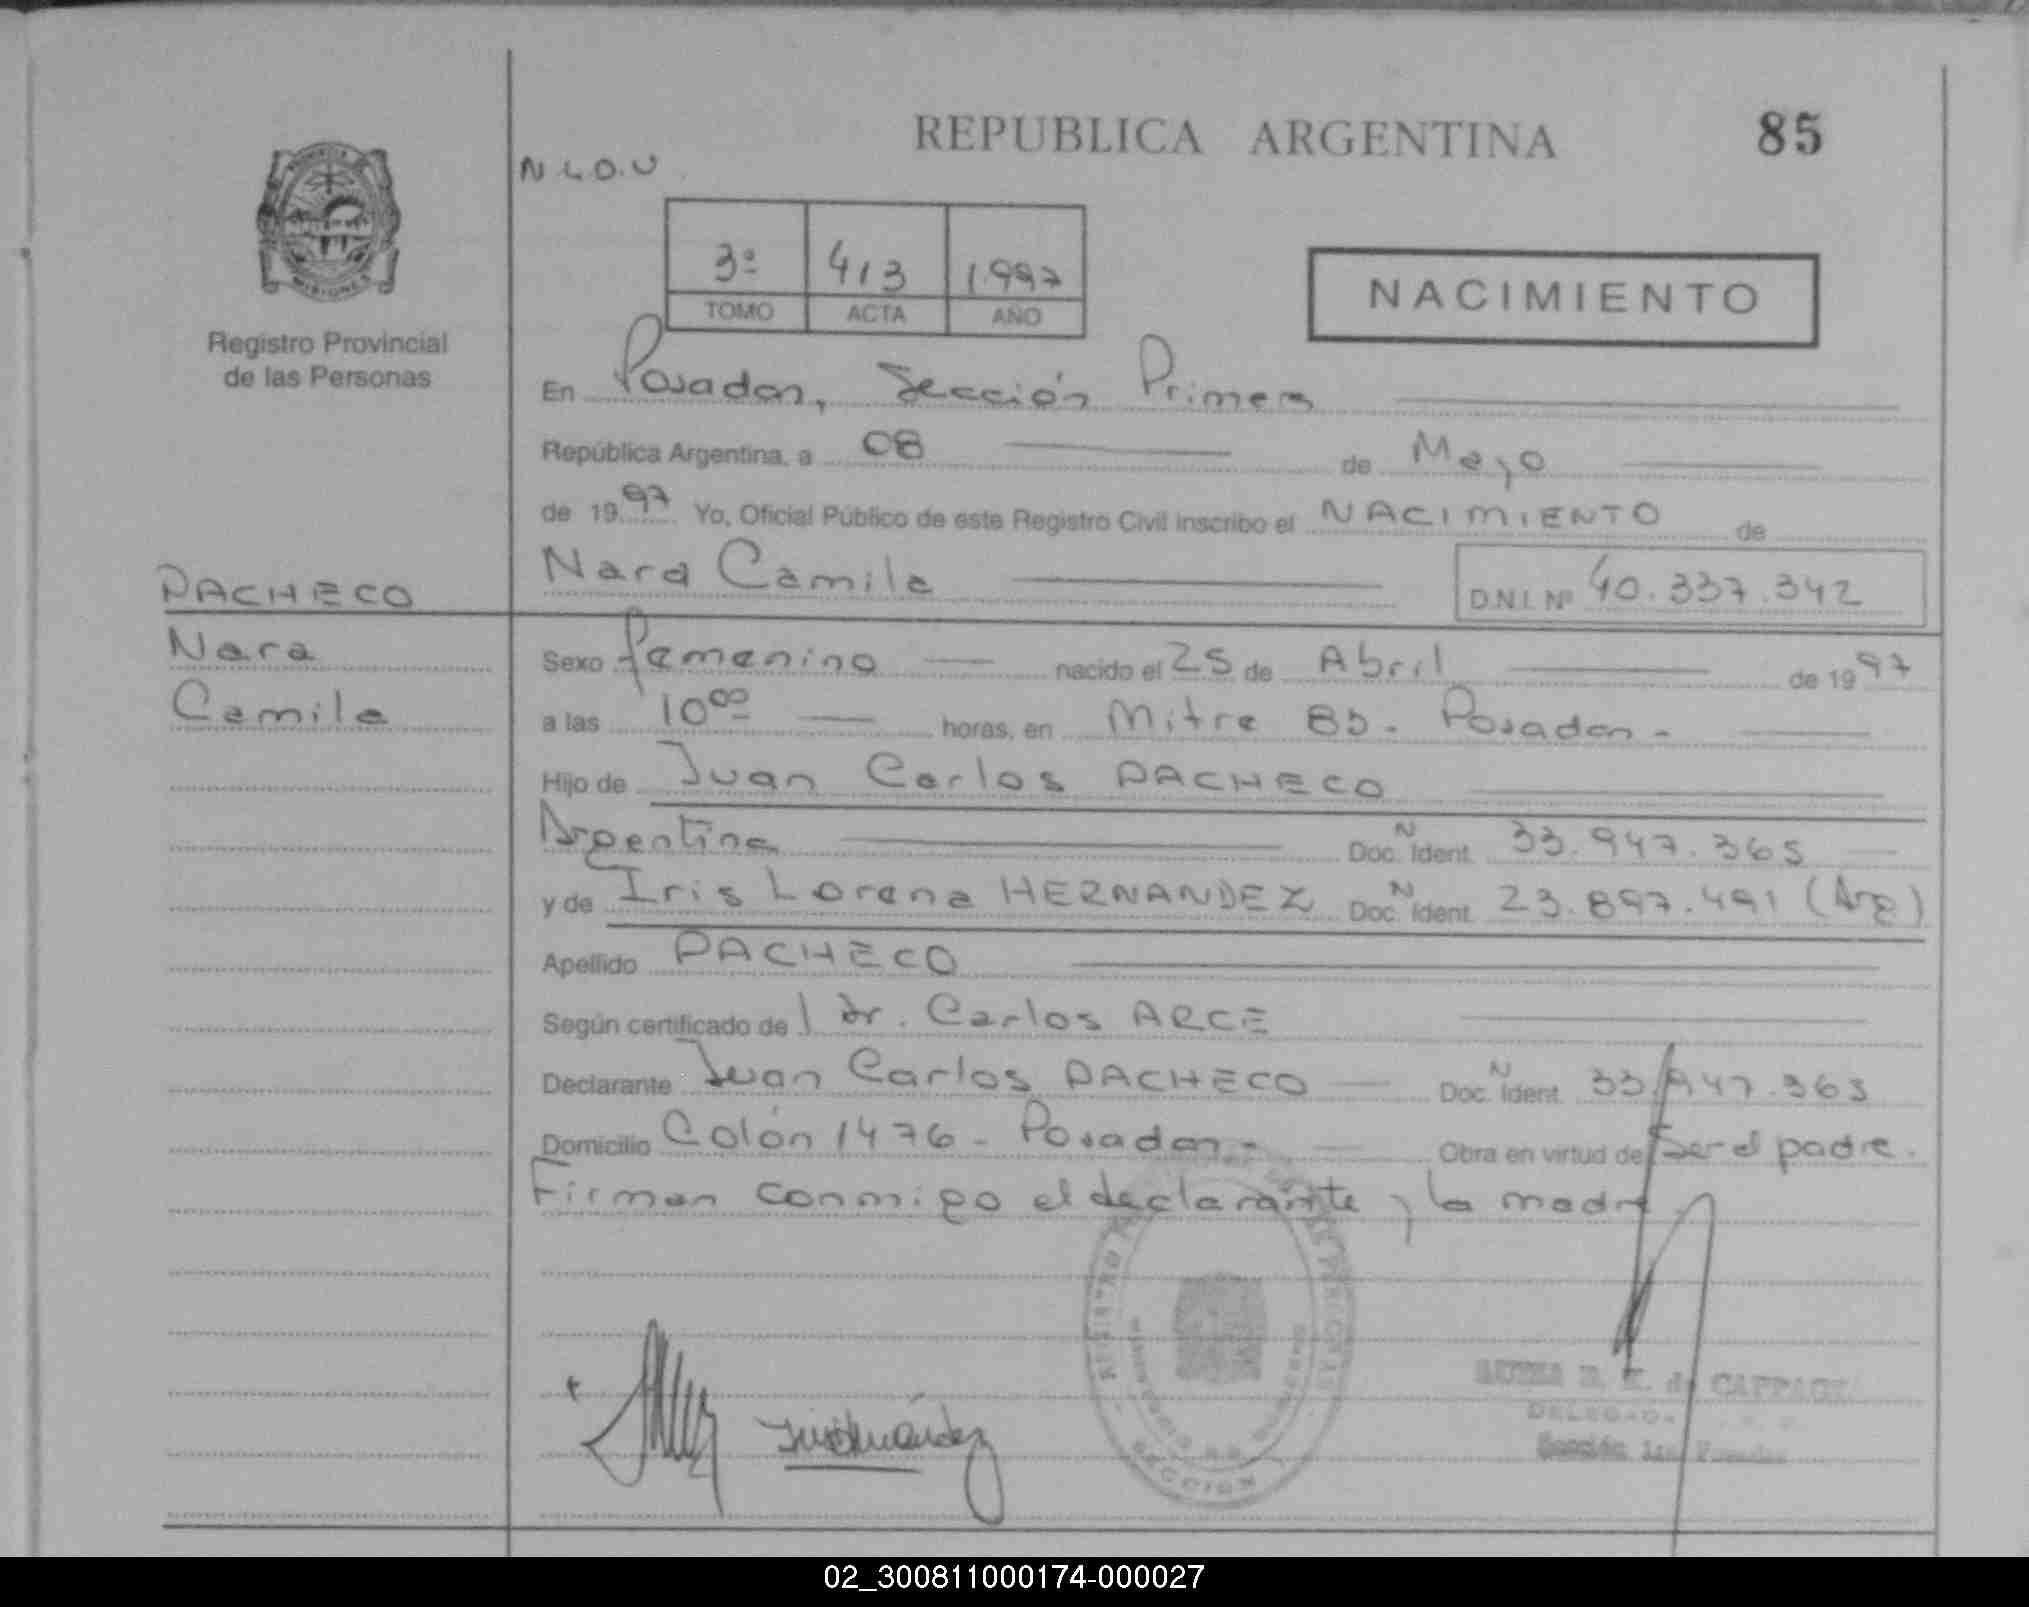 REPUBLICA ARGENTINA
85
PROVINCIA DE
MISIONES
Registro Provincial
de las Personas
N.L.O.U.
3º 413 1.997
TOMO ACTA AÑO
NACIMIENTO
En Posadas, Sección Primera
República Argentina, a 08 de Mayo
de 1997 Yo, Oficial Público de este Registro Civil inscribo el NACIMIENTO de
Nara Camila D.N.I. Nº 40.337.342
PACHECO
Nara
Camila
Sexo femenino nacido el 25 de Abril de 1997
a las 10⁰⁰ horas, en Mitre 85. Posadas.-
Hijo de Juan Carlos PACHECO
Argentina Doc. N Ident. 33.947.365
y de Iris Lorena HERNANDEZ Doc. N Ident. 23.897.491 (Arg)
Apellido PACHECO
Según certificado de l Dr. Carlos ARCE
Declarante Juan Carlos PACHECO Doc. N Ident. 33.947.365
Domicilio Colón 1476 - Posadas.- Obra en virtud de Ser el padre.
Firman conmigo el declarante y la madre
DELEGADA
Sección 1ra Posadas
SECCION
02_300811000174-000027